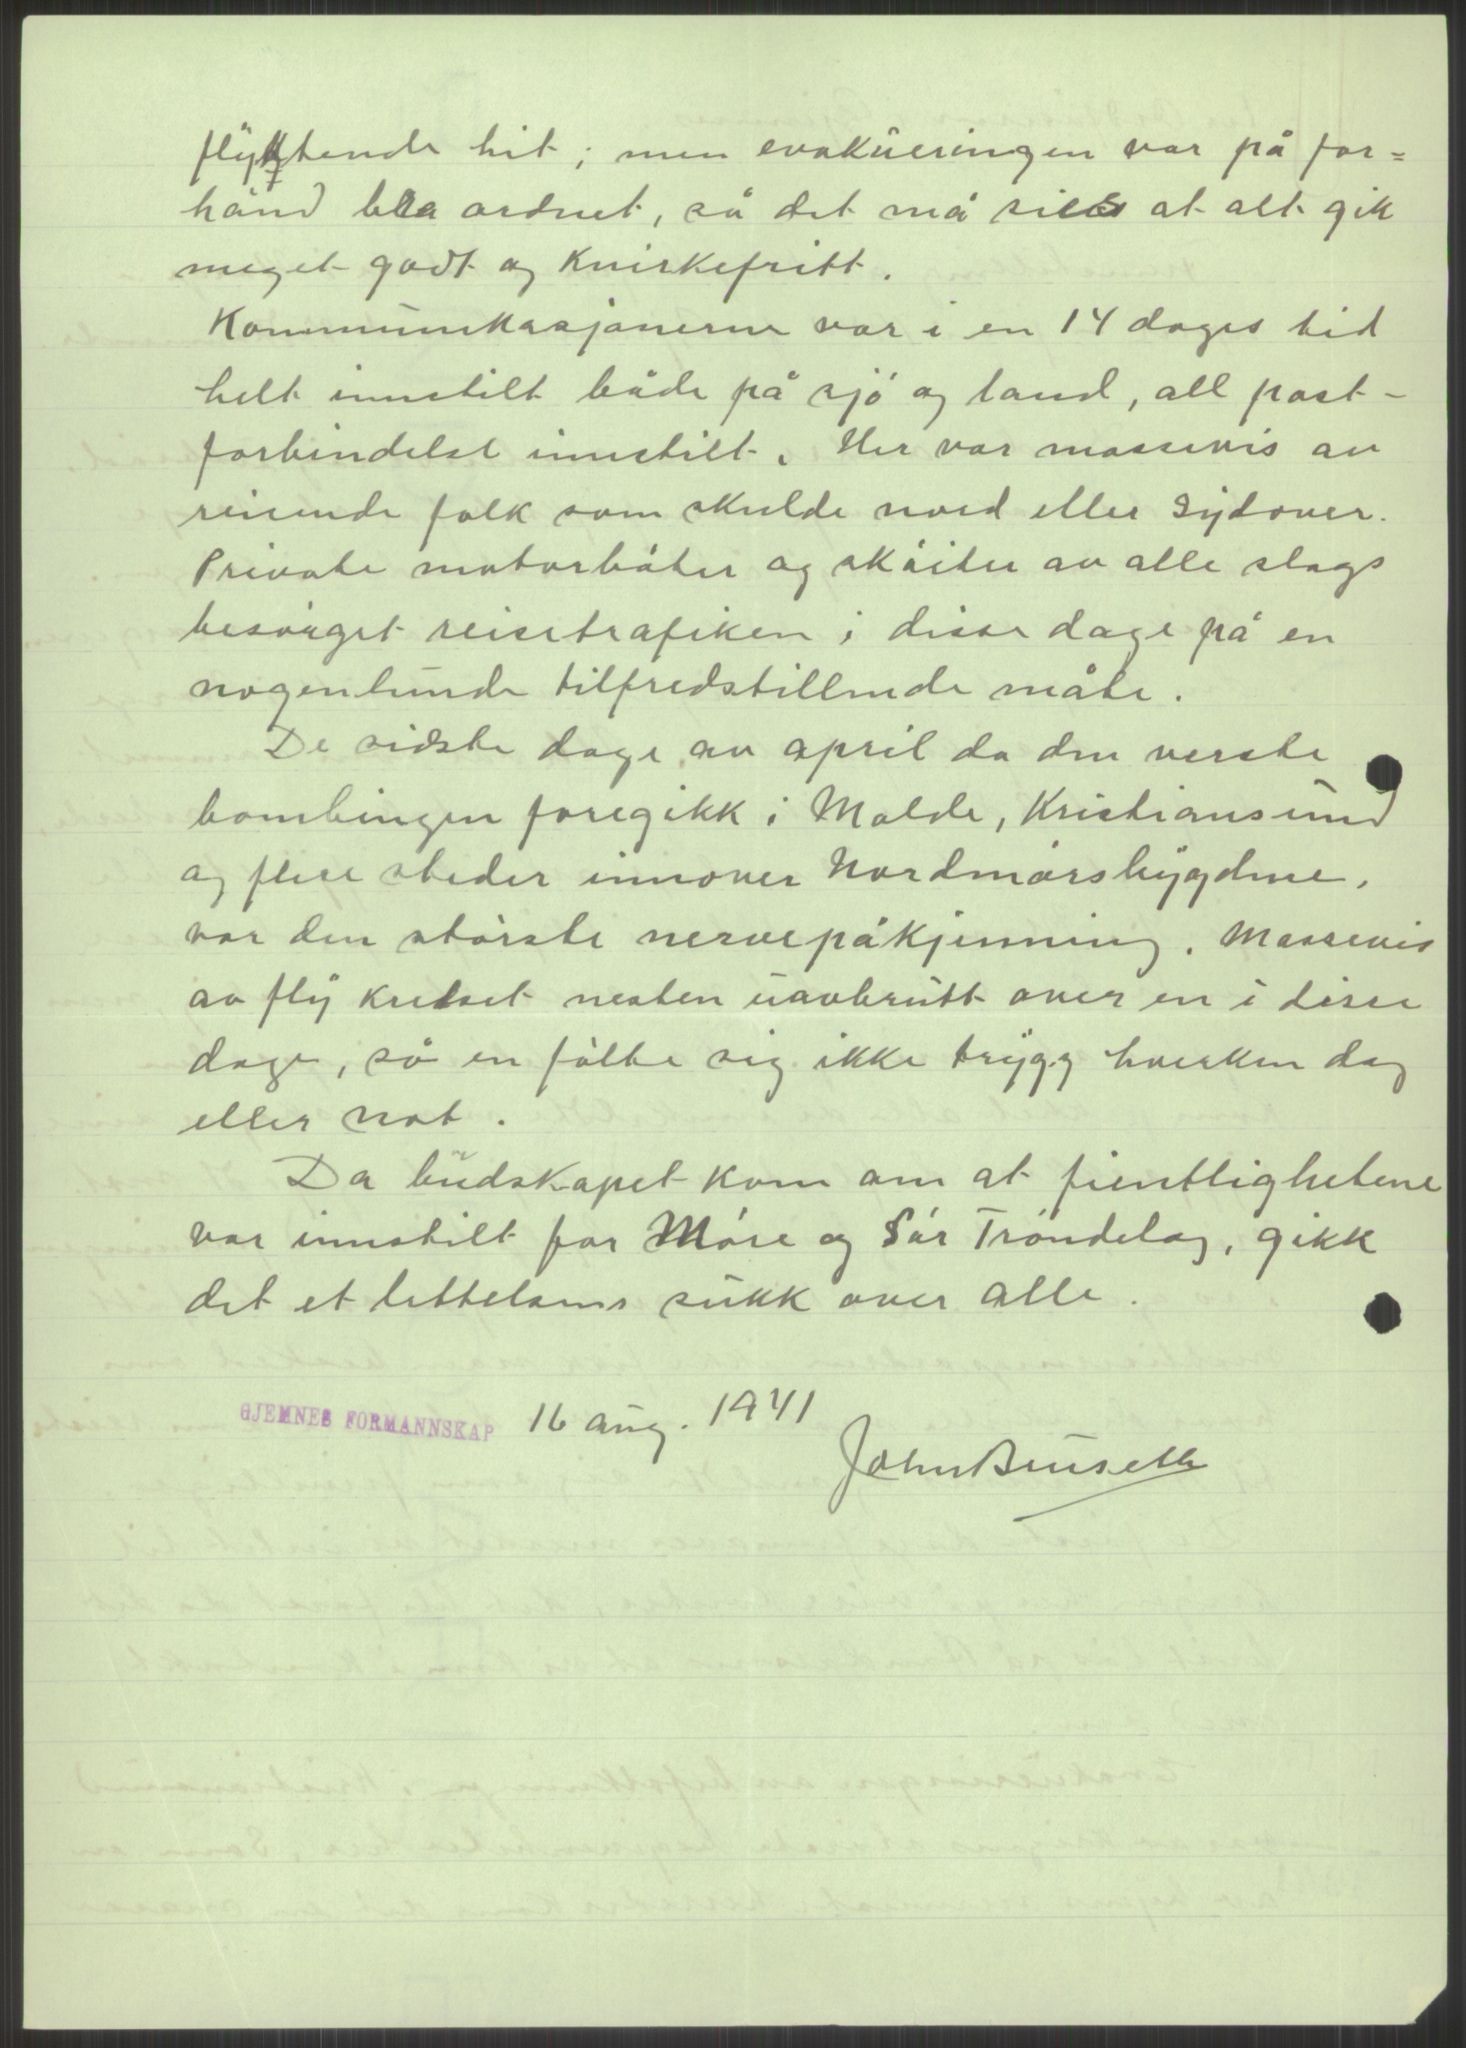 flyktende hit; men evakueringen var på for=
hånd bra ordnet, så det må sies at alt gik
meget godt og knirkefritt.
Kommunikasjonerne var i en 14 dages tid
helt innstilt både på sjø og land, all post-
forbindelse innstilt. Her var massevis av
reisende folk som skulde nord eller sydover.
Private motorbåter og skøiter av alle slags
besørget reisetrafiken i disse dage på en
nogenlunde tilfredstillende måte.
De sidste dage av april da den verste
bombingen foregikk i Molde, Kristiansund
og flere steder innover Nordmørsbygdene,
var den største nervepåkjenning. Massevis
av fly kretset nesten uavbrutt over en i disse
dage, så en følte sig ikke trygg hverken dag
eller nat.
Da budskapet kom om at fientlighetene
var innstilt for Møre og Sør Trøndelag, gikk
det et lettelsens sukk over alle.
GJEMNES FORMANNSKAP 16 aug. 1941
John